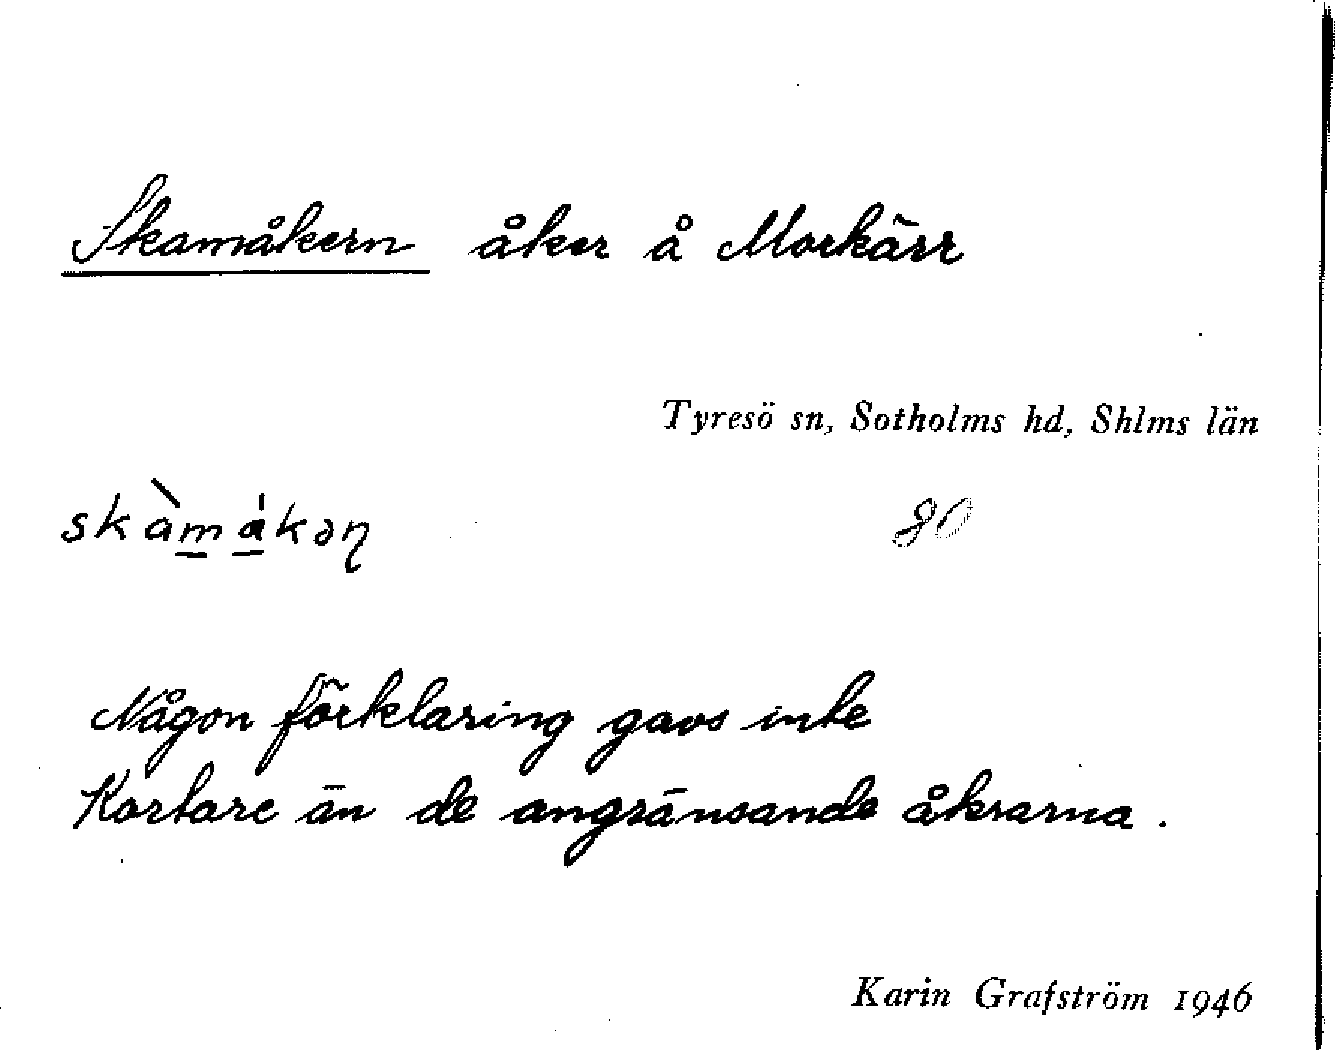 Skamåkern åker å Morkärr
Tyresö sn, Sotholms hd, Shlms län
skàm̲á̲kəɳ 80
Någon förklaring gavs inte
Kortare än de angränsande åkrarna.
Karin Grafström 1946